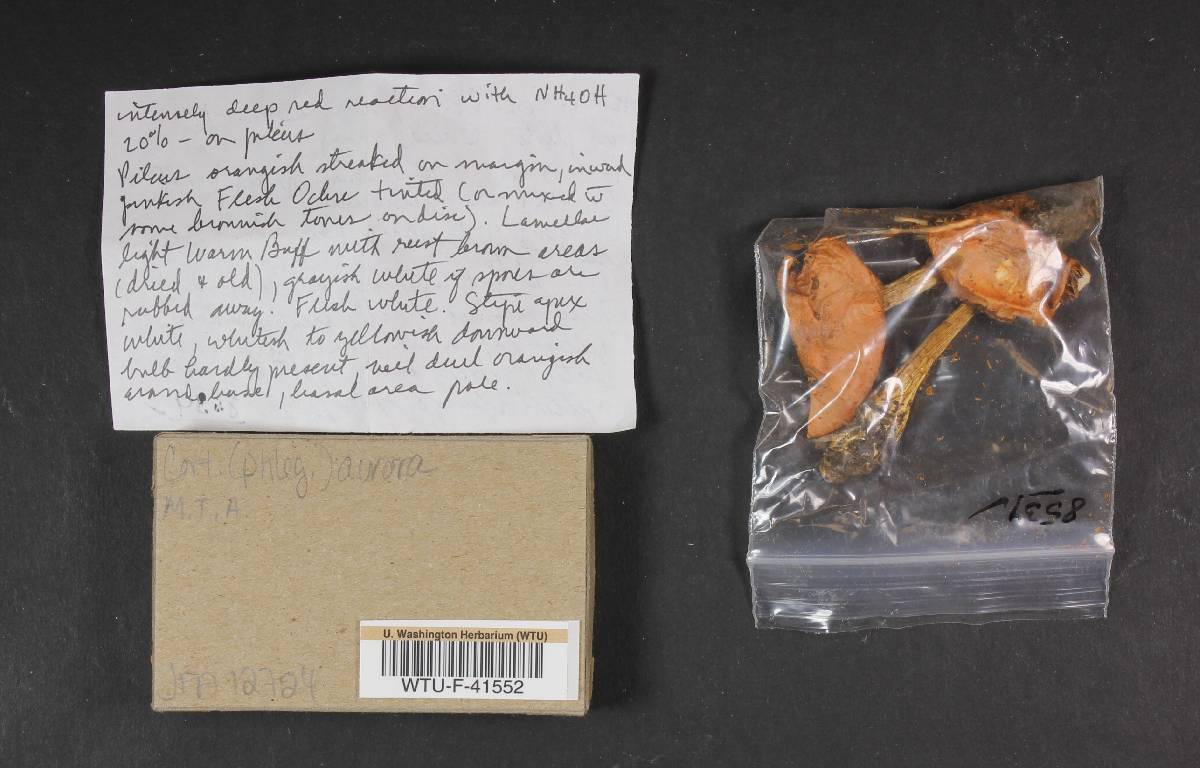 intensely deep red reaction with NH4OH
20% - on pileus
Pileus orangish streaked on margin, inward
pinkish Flesh Ochre tinted (or mixed to
some brownish tones on disc). Lamellae
light Warm Buff with rust brown areas
(dried & old), grayish white if spores are
rubbed away. Flesh white. Stipe apex
white, whitish to yellowish downward
bulb hardly present, veil dull orangish
around base, basal area pale.
Cort. (phleg.) aurora
M.T.A.
JFA 12724
U. Washington Herbarium (WTU)
WTU-F-41552
8531